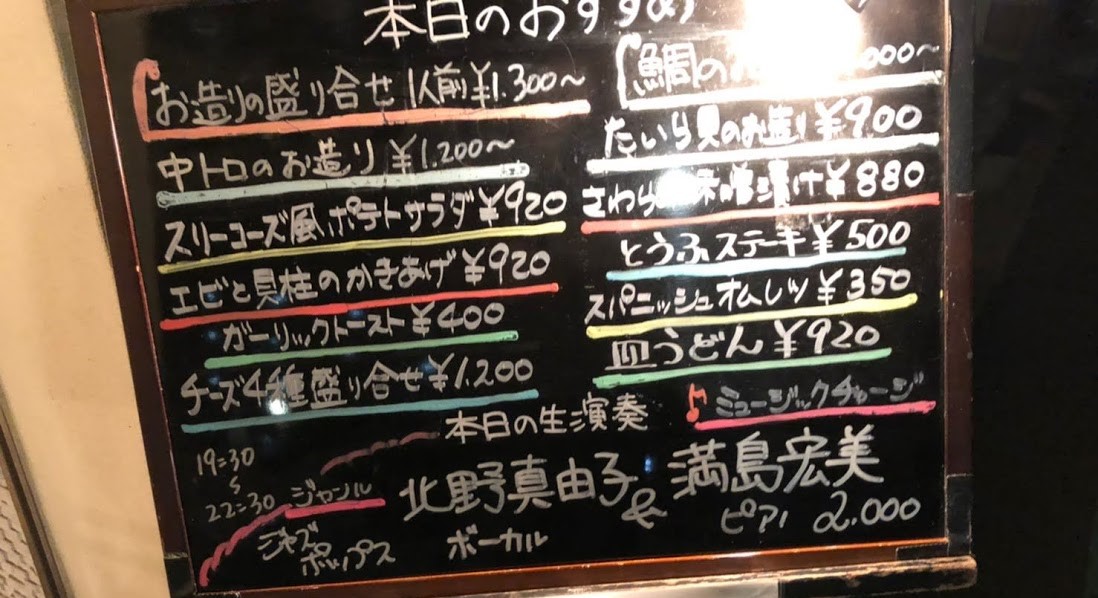 本日のおすすめ
お造りの盛り合せ 1人前¥1.300～
中トロのお造り ¥1.200～
スリーコーズ風ポテトサラダ¥920
エビと貝柱のかきあげ¥920
ガーリックトースト¥400
チーズ4種盛り合せ¥1.200
鯛の 000～
たいら貝のお造り¥900
さわら 味噌漬け¥880
とうふステーキ¥500
スパニッシュオムレツ¥350
皿うどん¥920
♪ミュージックチャージ
本日の生演奏
19:30
〜
22:30
ジャンル
ジャズ
ポップス
北野真由子 & 満島宏美
ボーカル
ピアノ 2.000